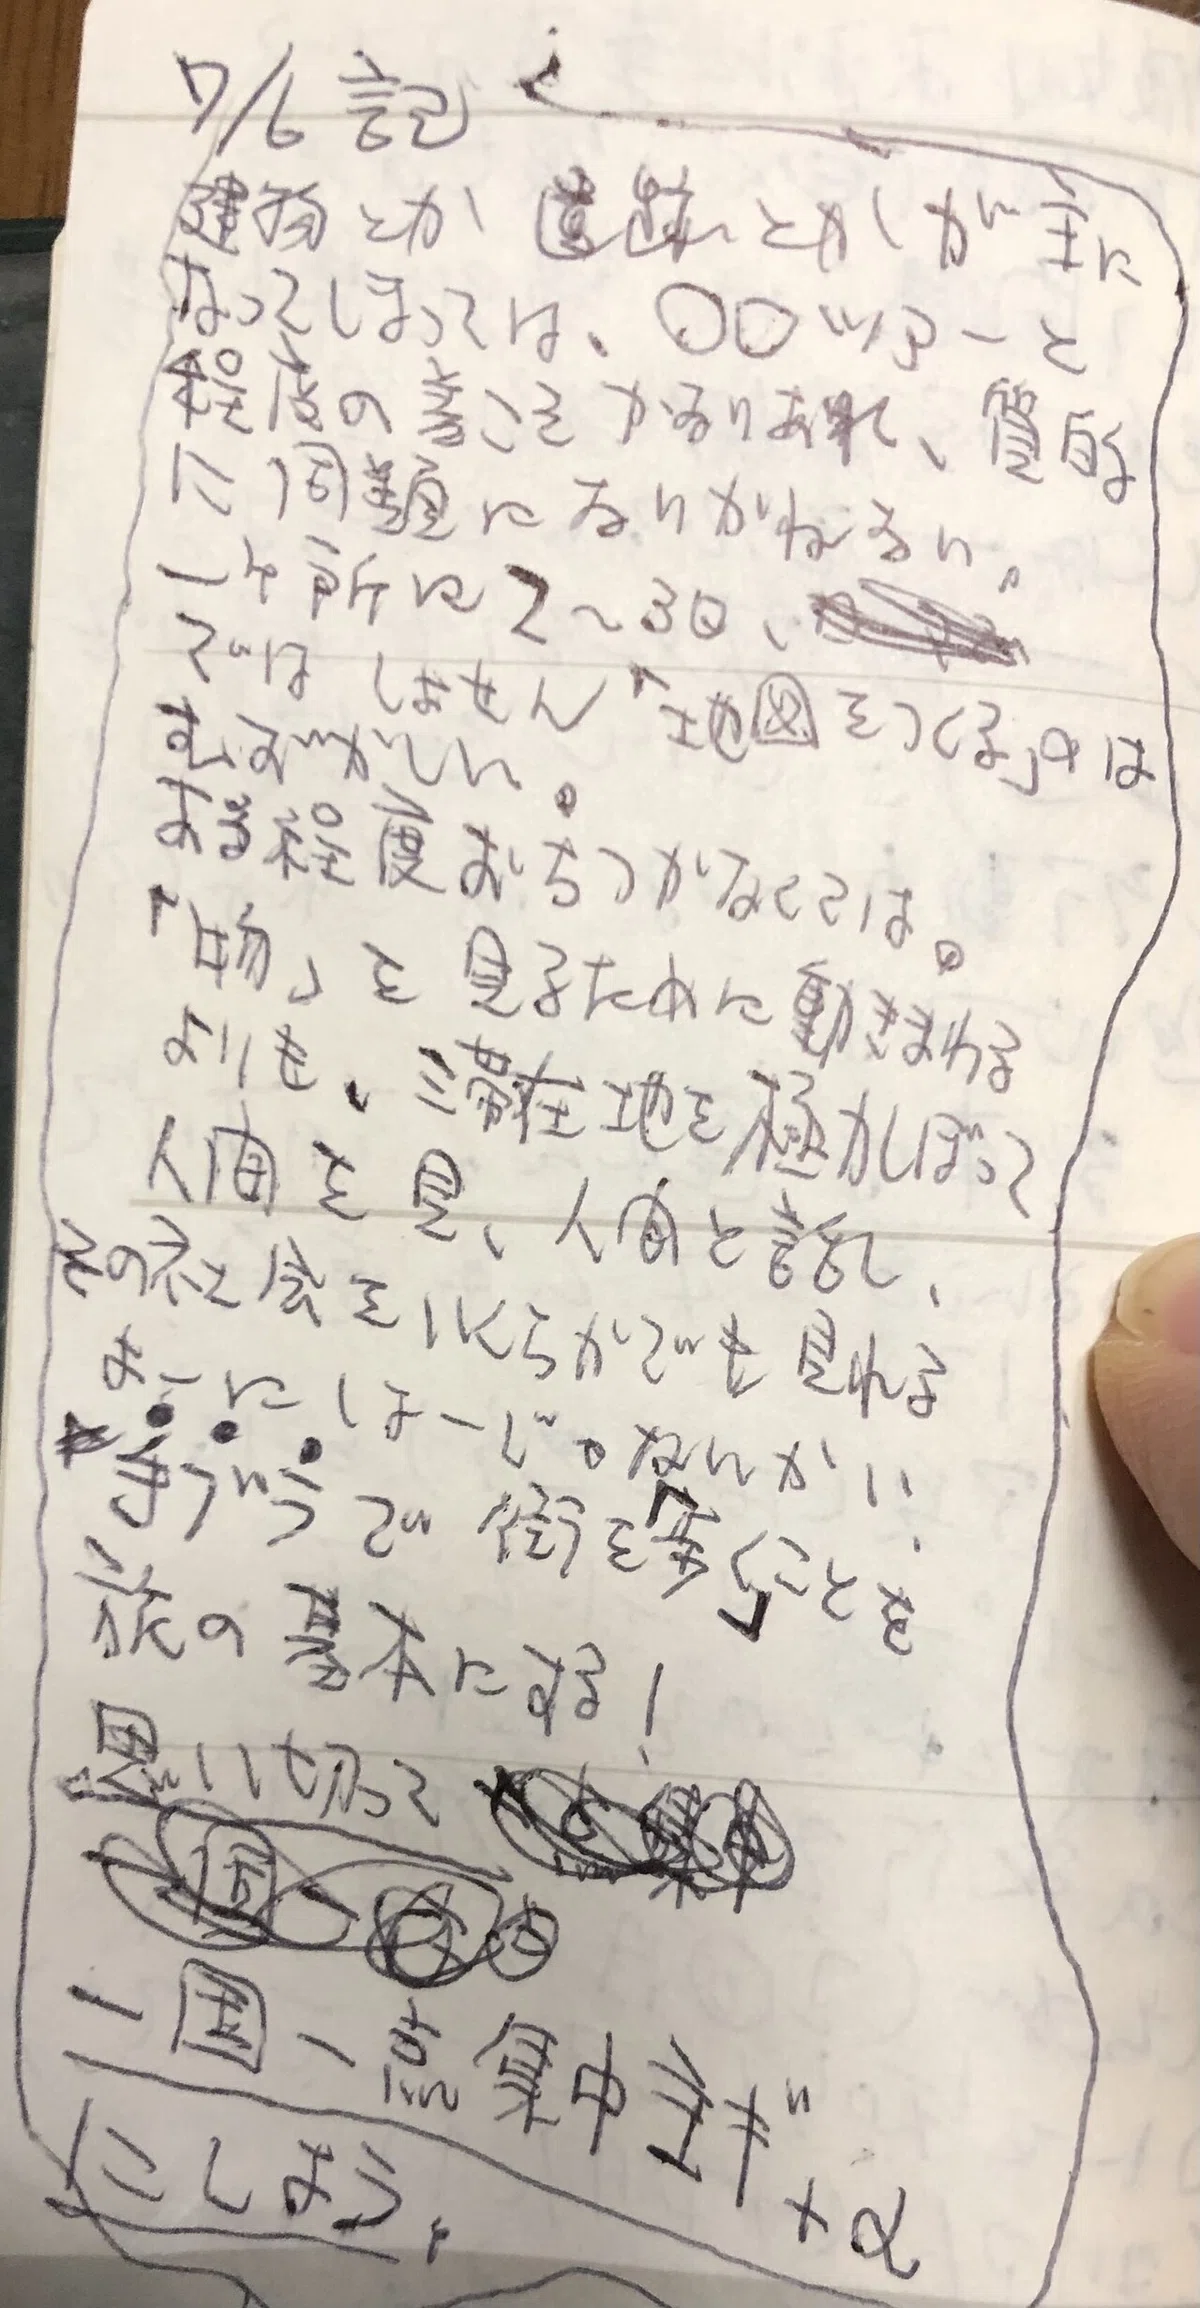 7/6 記
建物とか遺跡とかしが主に
なってしまっては、〇〇ツアーと
程度の差こそかなりあれ、質的
に同題になりかねない。
しょ所に2〜3日、
ではしません「地図をつくる」のは
むずかしい。
ある程度おちつかなくては。
「物」を見るために動きまわる
よりも、滞在地を極力しぼって
人間を見、人間と話し、
その社会をいくらかでも見れる
ようにしよーじゃないかい
手ブラで街を「歩く」ことを
旅の基本にする!
思い切って
一国一点集中主ギ+α
にしよう。